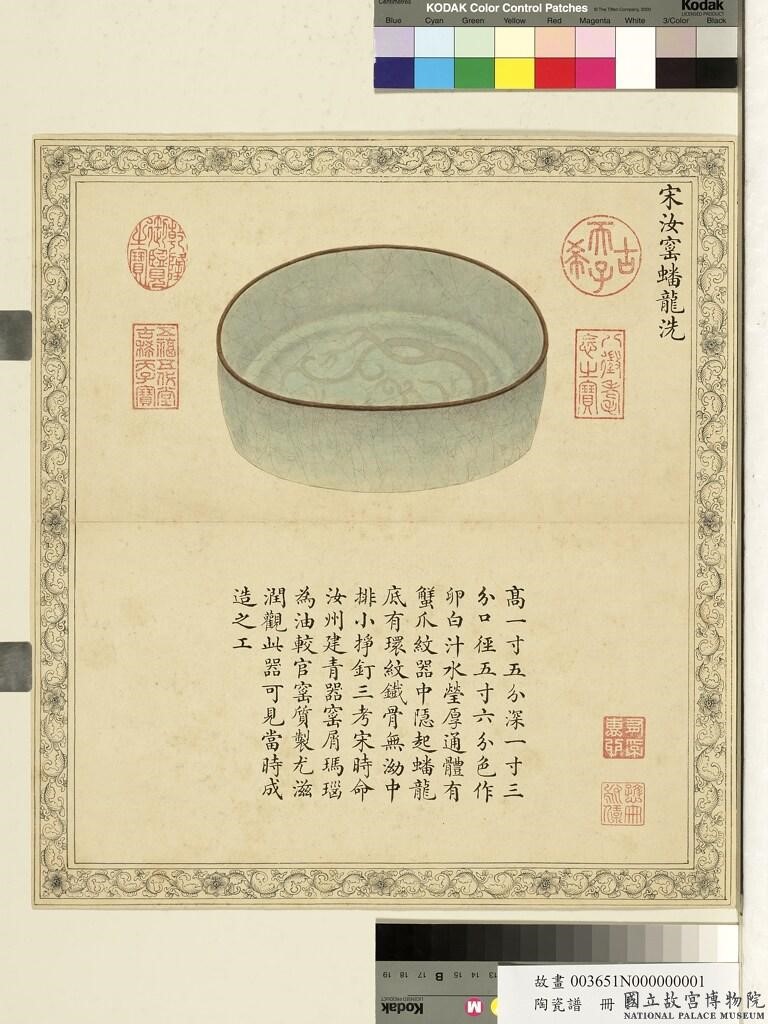 Centimetres
KODAK Color Control Patches
© The Tiffen Company, 2000
Kodak
LICENSED PRODUCT
Blue Cyan Green Yellow Red Magenta White 3/Color Black
宋汝窰蟠龍洗
古希天子
八徵耄念之寶
乾隆御覽之寶
五福五代堂古稀天子寶
高一寸五分深一寸三
分口徑五寸六分色作
卵白汁水瑩厚通體有
蟹爪紋器中隱起蟠龍
底有環紋鐵骨無泑中
排小掙釘三考宋時命
汝州建青器窰屑瑪瑙
為油較官窰質製尤滋
潤觀此器可見當時成
造之工
19 18 17 B 16 15 14 13
Kodak
LICENSED PRODUCT
M
故畫 003651N000000001
陶瓷譜 冊
國立故宮博物院
NATIONAL PALACE MUSEUM